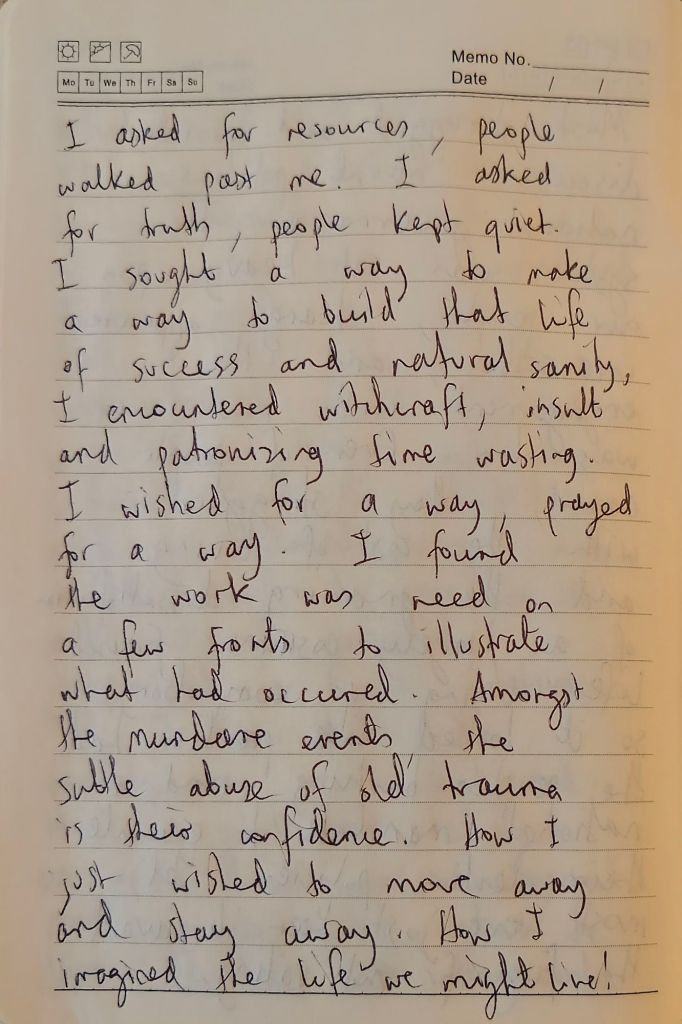 Memo No.
Mo Tu We Th Fr Sa Su
Date / /
I asked for resources, people
walked past me. I asked
for truth, people kept quiet.
I sought a way to make
a way to build that life
of success and natural sanity,
I encountered witchcraft, insult
and patronizing time wasting.
I wished for a way, prayed
for a way. I found
the work was need on
a few fronts to illustrate
what had occured. Amongst
the mundane events, the
subtle abuse of old trauma
is their confidence. How I
just wished to move away
and stay away. How I
imagined the life we might live!